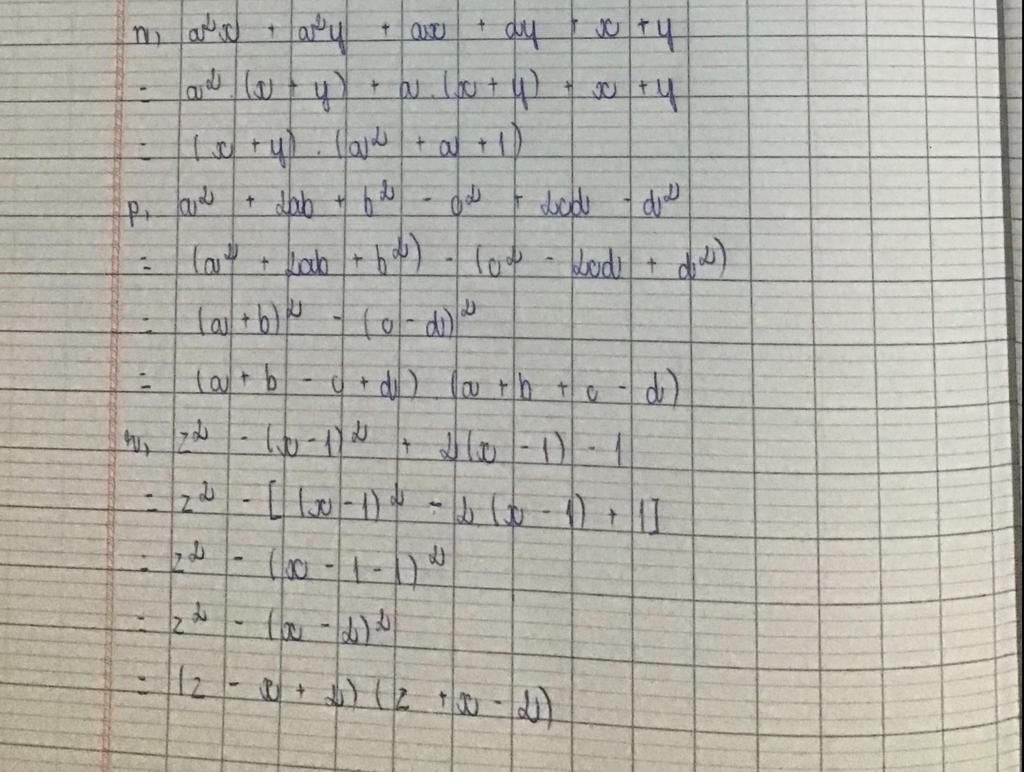 n, a²x + a²y + ax + ay + x + y
= a² (x + y) + a . (x + y) + x + y
= (x + y) . (a² + a + 1)
p, a² + 2ab + b² - c² + 2cd - d²
= (a² + 2ab + b²) - (c² - 2cd + d²)
= (a + b)² - (c - d)²
= (a + b - c + d) (a + b + c - d)
z² - (x - 1)² + 2(x - 1) - 1
= z² - [ (x - 1)² - 2 (x - 1) + 1]
= z² - (x - 1 - 1)²
= z² - (x - 2)²
= (z - x + 2) (z + x - 2)